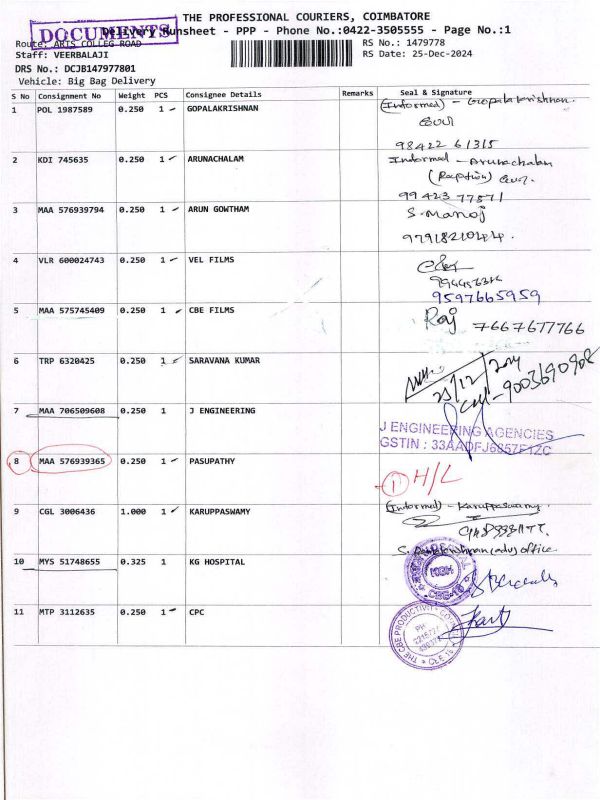 THE PROFESSIONAL COURIERS, COIMBATORE
DOCUMENTS
Delivery Runsheet - PPP - Phone No.:0422-3505555 - Page No.:1
Route: ARTS COLLEG ROAD
RS No.: 1479778
Staff: VEERBALAJI
RS Date: 25-Dec-2024
DRS No.: DCJB147977801
Vehicle: Big Bag Delivery
S No Consignment No Weight PCS Consignee Details Remarks Seal & Signature
1 POL 1987589 0.250 1 GOPALAKRISHNAN
(Informed) - Gopalakrishnan.
98422 61315
2 KDI 745635 0.250 1 ARUNACHALAM
Informed - Arunachalam
(Reception)
99423 77871
3 MAA 576939794 0.250 1 ARUN GOWTHAM
S. Manoj
9791821044.
4 VLR 600024743 0.250 1 VEL FILMS
9597665959
5 MAA 575745409 0.250 1 CBE FILMS
Raj 7667677766
6 TRP 6320425 0.250 1 SARAVANA KUMAR
25/12/2024
9003690908
7 MAA 706509608 0.250 1 J ENGINEERING
J ENGINEERING AGENCIES
GSTIN : 33AADFJ6857F1ZC
8 MAA 576939365 0.250 1 PASUPATHY
1 H/L
9 CGL 3006436 1.000 1 KARUPPASWAMY
(Informed) - Karuppaswamy
(adv) office
10 MYS 51748655 0.325 1 KG HOSPITAL
11 MTP 3112635 0.250 1 CPC